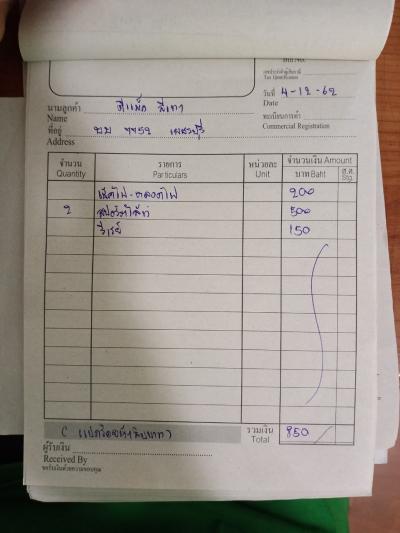 Bill No.
เลขประจำตัวผู้เสียภาษี
Tax Identification
วันที่ 4-12-62
Date
นามลูกค้า ดีแม็ก สีเทา
Name
ทะเบียนการค้า
Commercial Registration
ที่อยู่ บบ 7752 เพชรบุรี
Address
จำนวน รายการ หน่วยละ จำนวนเงิน Amount
Quantity Particulars Unit บาท Baht ส.ต. Stg.
เช็คไฟ-หลอดไฟ 200
2 500
รีเรย์ 150
(แปดร้อยห้าสิบบาท) รวมเงิน 850
Total
ผู้รับเงิน
Received By
ขอรับเงินด้วยความขอบคุณ